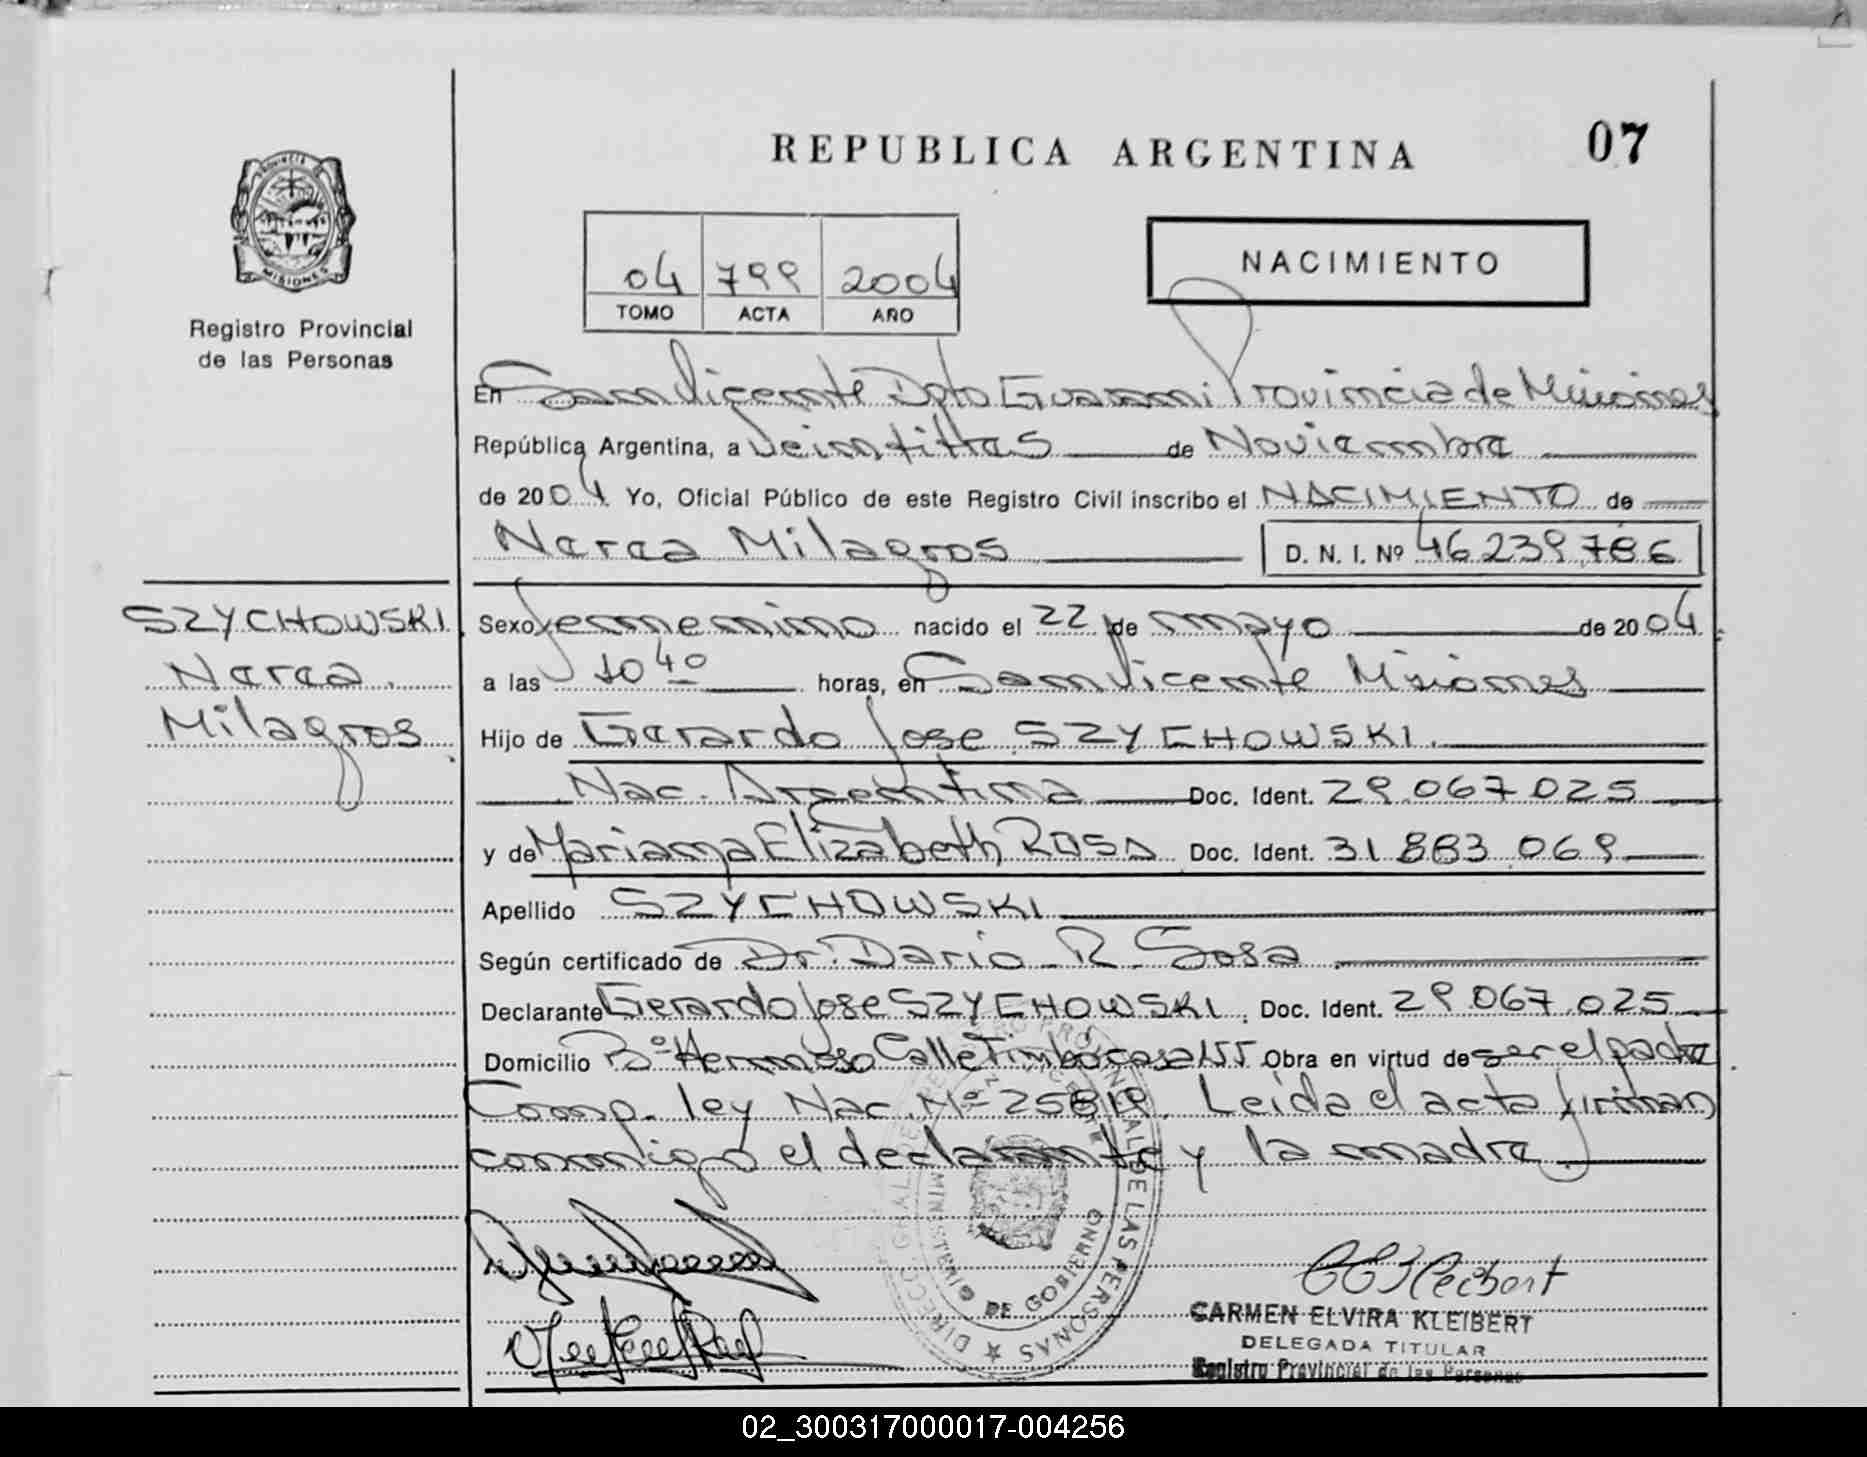 REPUBLICA ARGENTINA
07
PROVINCIA
MISIONES
Registro Provincial
de las Personas
04 799 2004
TOMO ACTA AÑO
NACIMIENTO
En San Vicente Dpto Guarani Provincia de Misiones
República Argentina, a Veintitres de Noviembre
de 2004 Yo, Oficial Público de este Registro Civil inscribo el NACIMIENTO de
Nerea Milagros
D. N. I. Nº 46 239 786
SZYCHOWSKI
Nerea
Milagros
Sexo femenino nacido el 22 de mayo de 2004
a las 10 40 horas, en San Vicente Misiones
Hijo de Gerardo Jose SZYCHOWSKI.
Nac. Argentina Doc. Ident. 29.067.025
y de Mariana Elizabeth ROSA Doc. Ident. 31 883 069
Apellido SZYCHOWSKI
Según certificado de Dr. Dario R. Sosa
Declarante Gerardo Jose SZYCHOWSKI. Doc. Ident. 29 067.025
Domicilio Bº Hermoso Calle Timbo casa 155 Obra en virtud de ser el padre
Comp. ley Nac. Nº 25819. Leida el acta firman
conmigo el declarante y la madre.
MINISTERIO DE GOBIERNO
CARMEN ELVIRA KLEIBERT
DELEGADA TITULAR
Registro Provincial de las Personas
02_300317000017-004256